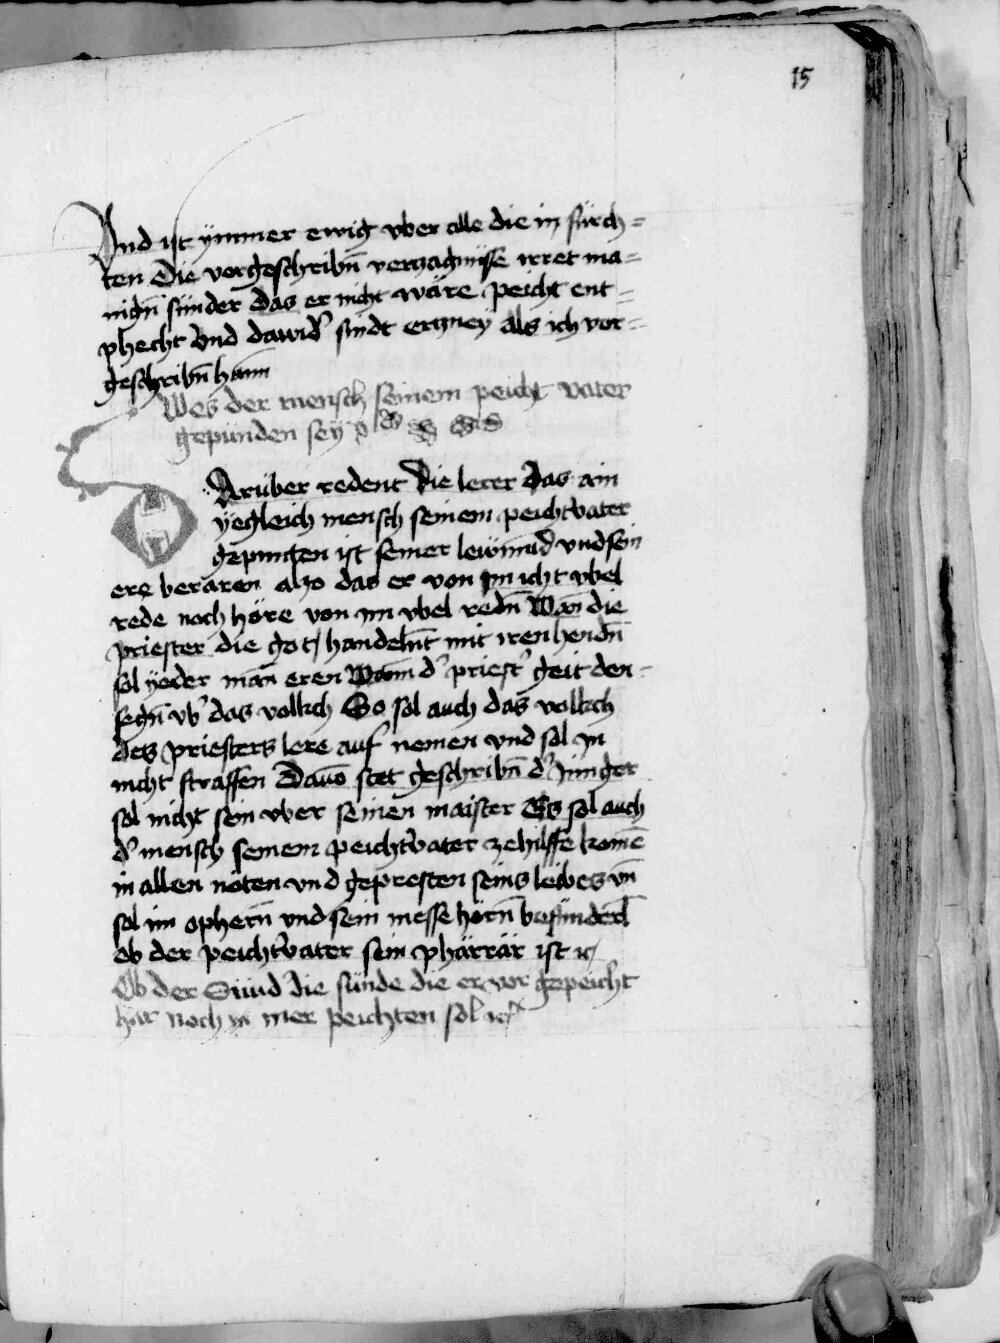 15
Vnd ist ymmer ewig vber alle die in fürch=
ten Die vorgeschribn̄ verczagnüsse irret ma=
nign̄ sünder Das er nicht wäre peicht ent=
phecht Vnd dawid' sindt erczney als ich vor=
geschribn̄ hann
Wes der mensch seinem peicht vater
gepunden sey
DAruber redent die lerer Das ain
yegleich mensch seinem peichtvater
gepunden ist seiner lewmūd vnd sein
ere bewaren also das er von im icht vbel
rede noch höre von im vbel redn̄ Wan̄ die
priester die got handelnt mit iren hendn̄
sol yeder man eren Wann d' priest' geit den
segn̄ vb' das volkch So sol auch das volkch
des priesters lere auf nemen vnd sol in
nicht straffen Dauō stet geschribn̄ d' Junger
sol nicht sein vber seinen maister Es sol auch
d' mensch seinem peichtvater ze hilffe komē
in allen nöten vnd gepresten seins leibes vn̄
sol im ophern̄ vnd sein messe hörn̄ besunderl
ob der peichtvater sein pharrär ist
Ob der Sund die sünde die er vor gepeicht
hat noch mer peichten sol